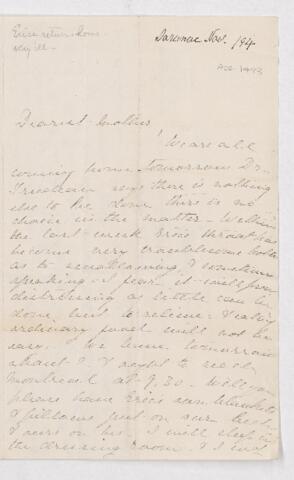 Eric return home
very ill
Saranac Nov. 194
ACC 1493
Dearest Mother
We are all
coming home tomorrow Dr.
Trudeau says there is nothing
else to be done there is no
choice in the matter - Within
the last week Eric's throat has
become very troublesome both
as to swallowing, & sometimes
speaking & I fear it will prove
distressing as little can be
done but to relieve. & eating
ordinary food will not be
easy. We leave tomorrow
about & ought to reach
Montreal at 9.30. Will you
please have Eric's own blankets
& pillows put on our bed.
& ours on his. I will sleep in
the dressing room. & I